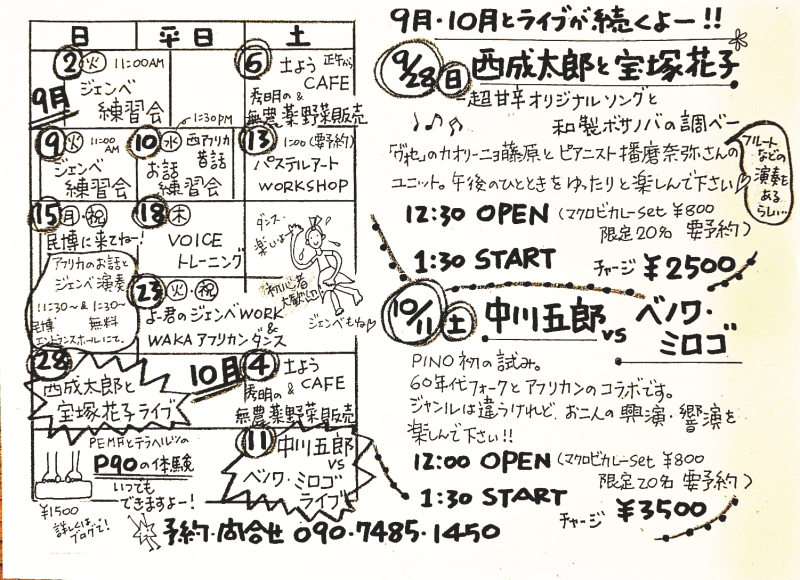 日 平日 土
9月
2 火 11:00AM
ジェンベ
練習会
6 土よう 正午から
CAFE
秀明の &
無農薬野菜販売
9 火 11:00AM
ジェンベ
練習会
1:30PM
10 水 西アフリカ
昔話
お話
練習会
13 1:00(要予約)
パステルアート
WORKSHOP
15 月・祝
民博に来てねー!
アフリカのお話と
ジェンベ演奏
11:30~&1:30~
民博 無料
エントランスホールにて。
18 木
VOICE
トレーニング
ダンス・
楽しいよ
初心者
大歓迎
ジェンベもね♡
23 火・祝
よー君のジェンベWORK
&
WAKAアフリカンダンス
28
西成太郎と
宝塚花子ライブ
10月
4 土よう
& CAFE
秀明の
無農薬野菜販売
PEMAとテラヘルツの
P90の体験
いつでも
できますよー!
¥1500
詳しくは
ブログで!
11 中川五郎
vs
ベノワ・ミロゴ
ライブ
予約・問合せ 090・7485・1450
9月・10月とライブが続くよー!!
9/28 日 西成太郎と宝塚花子
―超甘辛オリジナルソングと
和製ボサノバの調べ―
「ヴォセ」のカオリーニョ藤原とピアニスト播磨奈弥さんの
ユニット。午後のひとときをゆったりと楽しんで下さい♡
フルート
などの
演奏も
ある
らしい…
12:30 OPEN (マクロビカレーset ¥800
限定20名 要予約)
1:30 START チャージ ¥2500
10/11 土 中川五郎 vs ベノワ・
ミロゴ
PINO初の試み。
60年代フォークとアフリカンのコラボです。
ジャンルは違うけれど、お二人の興演・響演を
楽しんで下さい!!
12:00 OPEN (マクロビカレーset ¥800
限定20名 要予約)
1:30 START
チャージ ¥3500